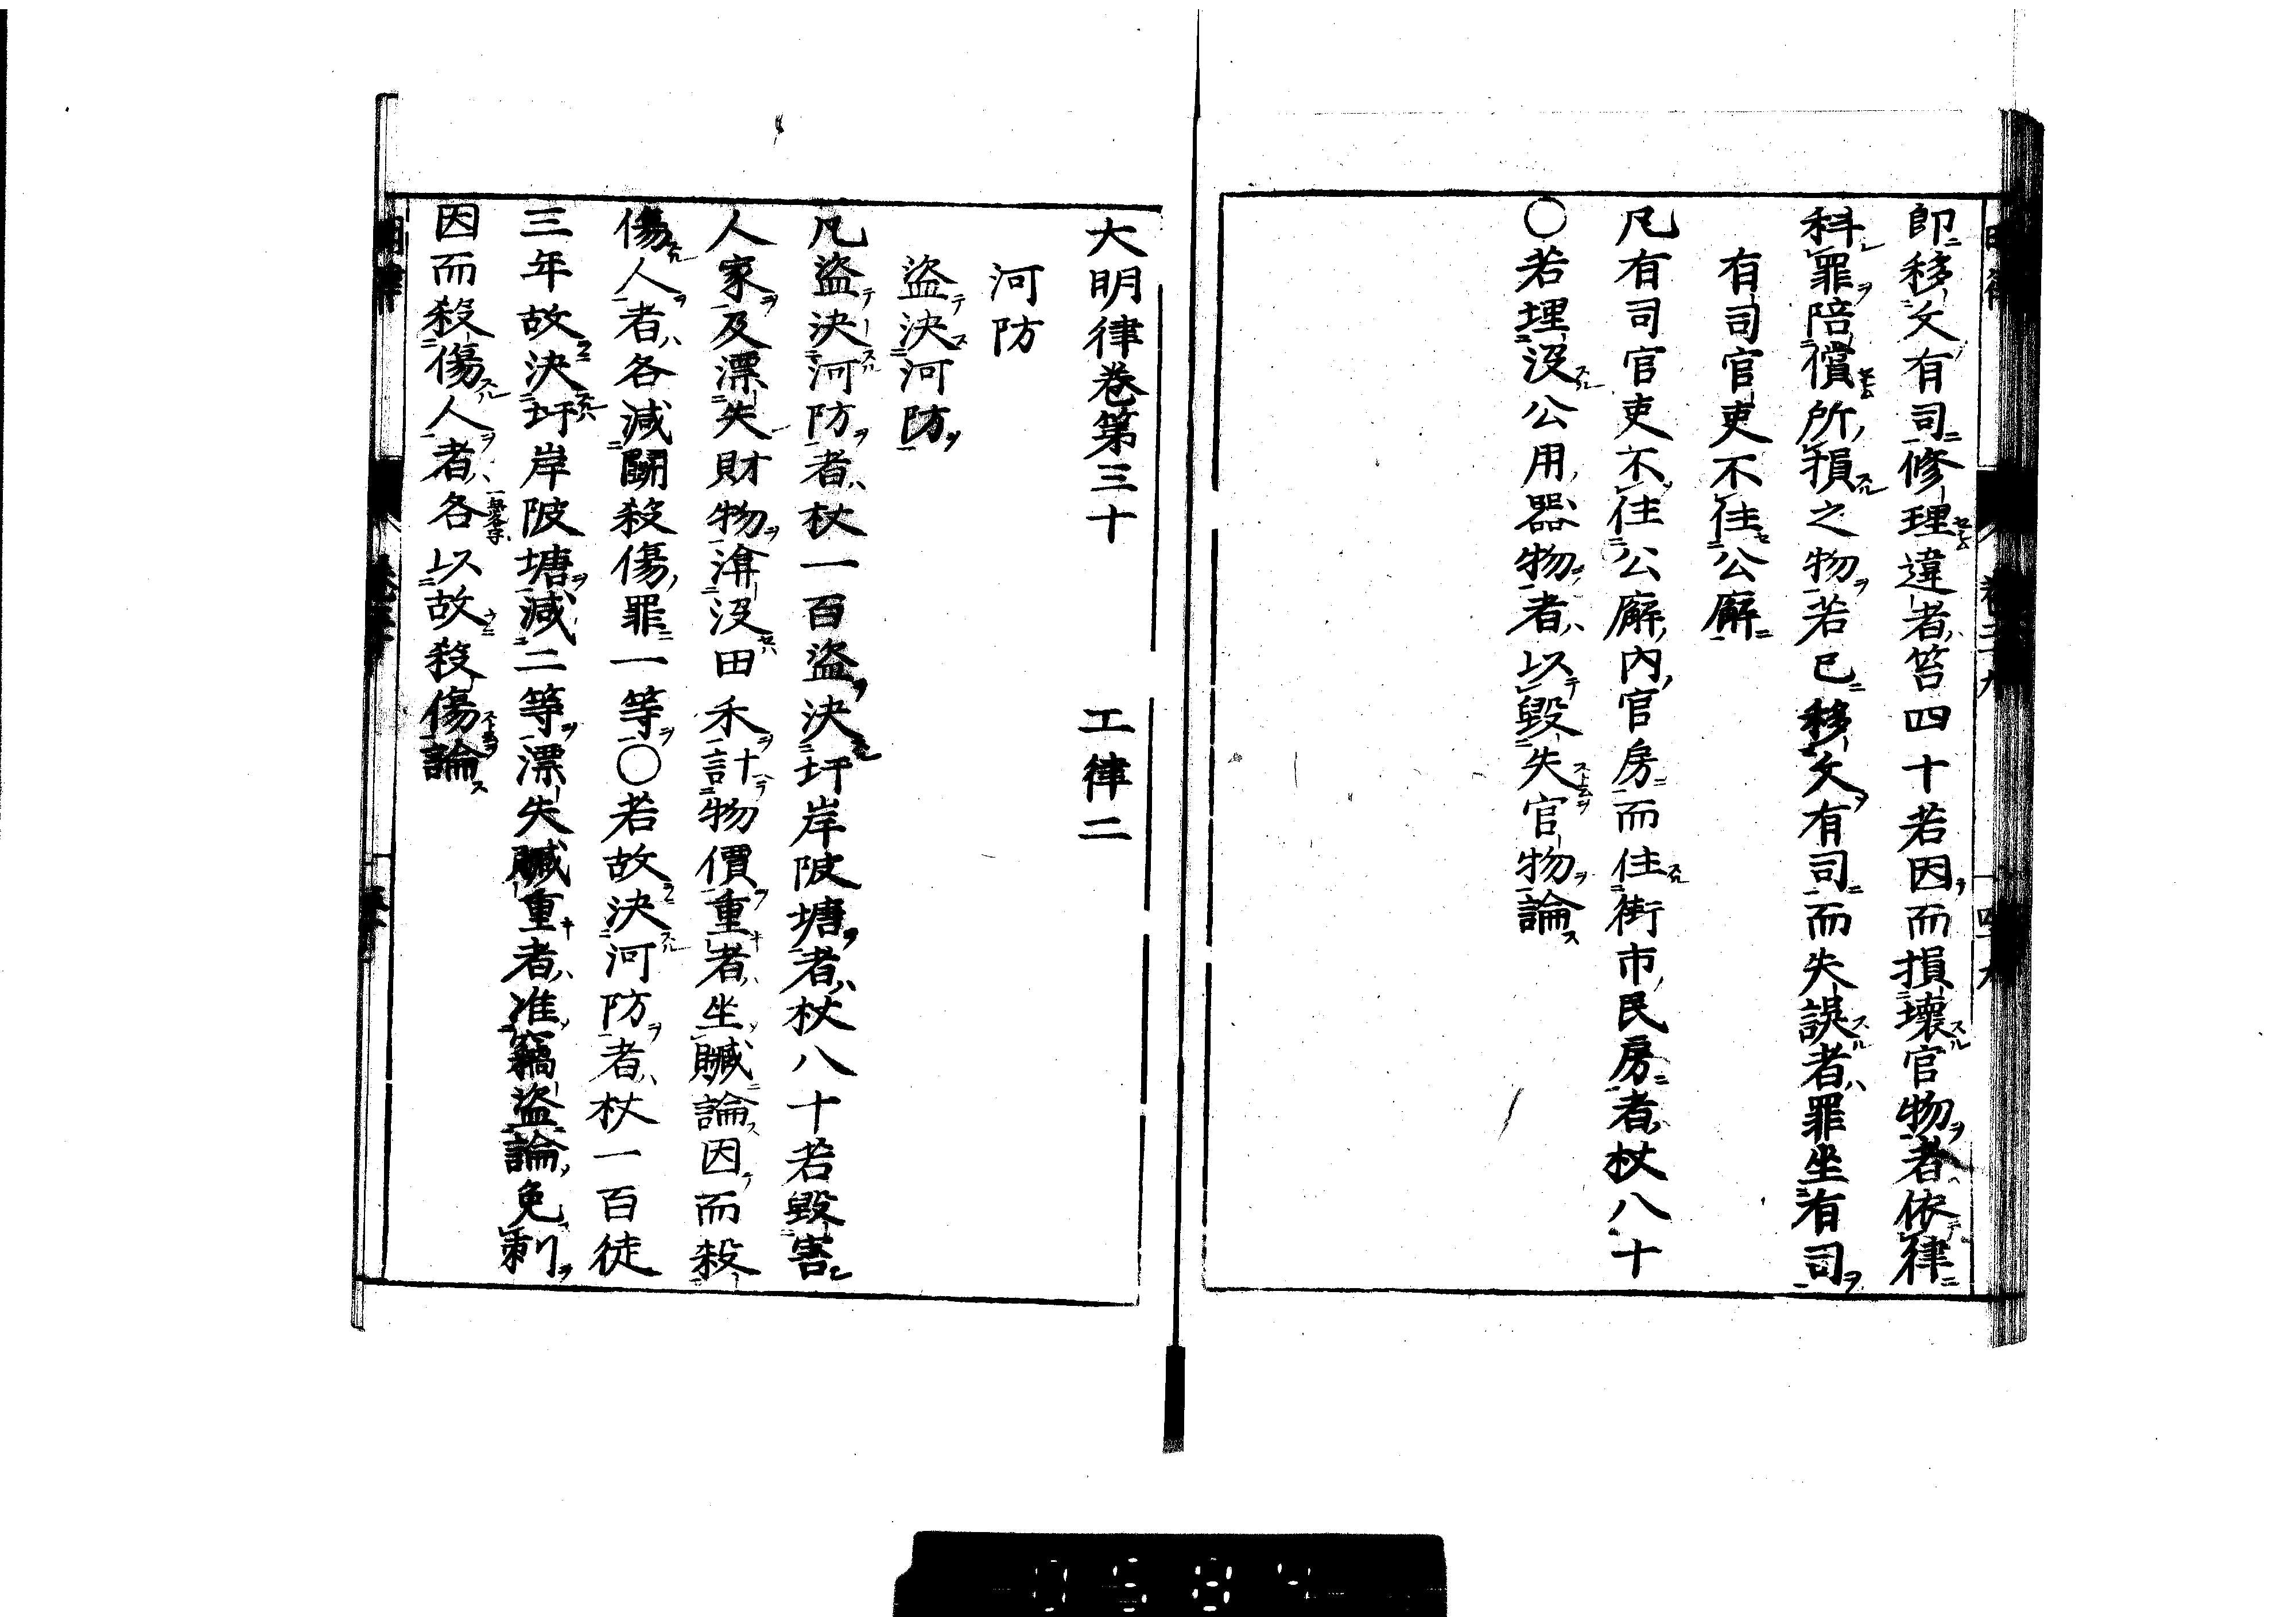 即移文有司修理違者笞四十若因而損壞官物者依律
科罪陪償所損之物若已移文有司而失誤者罪坐有司
有司官吏不住公廨
凡有司官吏不住公廨內官房而住街市民房者杖八十
〇若埋沒公用器物者以毀失官物論
大明律卷第三十 工律二
河防
盜決河防
凡盜決河防者杖一百盜決圩岸陂塘者杖八十若毀害
人家及漂失財物渰沒田禾計物價重者坐贓論因而殺
傷人者各減鬬殺傷罪一等〇若故決河防者杖一百徒
三年故決圩岸陂塘減二等漂失贓重者准竊盜論免刺
因而殺傷人者各以故殺傷論